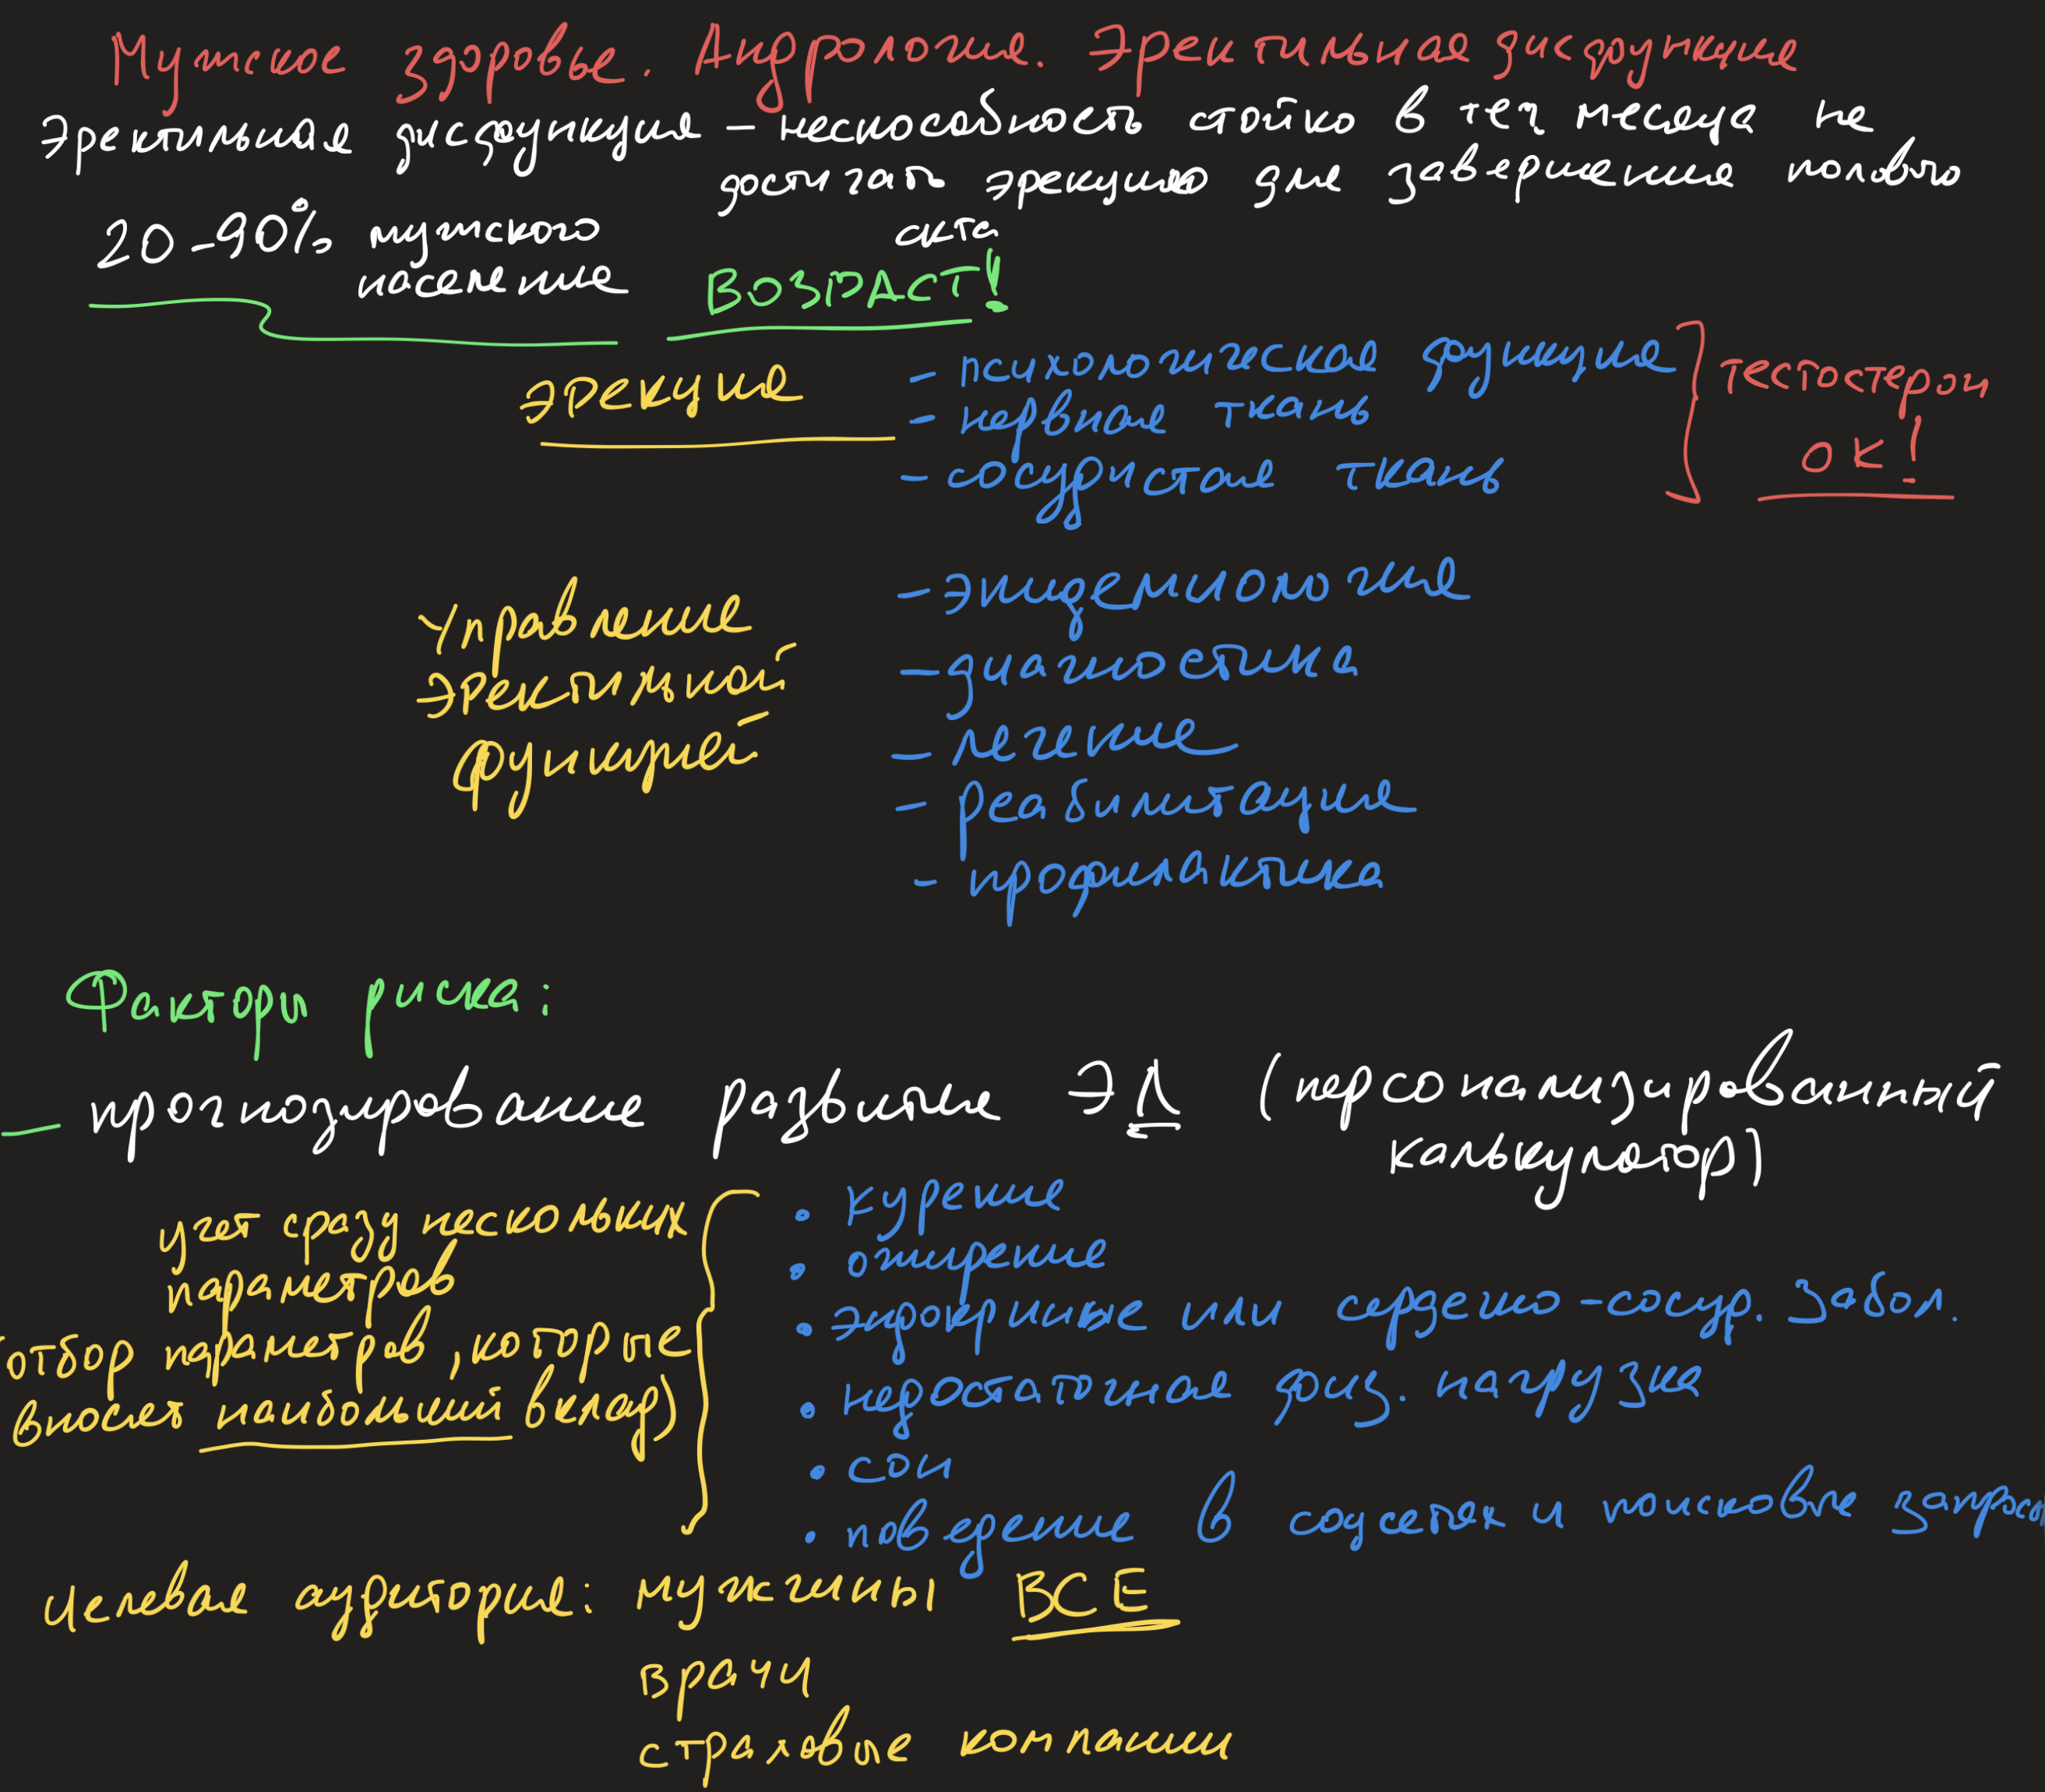 Мужское здоровье. Андрология. Эректильная дисфункция
Эректильная дисфункция – неспособность стойко в теч месяца не
достигать эрекцию для завершения полового
акта
20-90% мужского
населения
ВОЗРАСТ!
ЭРЕКция
- психологическая функция
- нервная ткань
- сосудистая ткань
Тестостерон
ОК!
Управление
эректильной
функцией
- эпидемиология
- диагностика
- лечение
- реабилитация
- профилактика
Факторы риска:
- прогнозирование развития ЭД (персонализированный
калькулятор)
учет сразу нескольких
параметров
(отбор параметров, которые
вносят наибольший вклад)
• курение
• ожирение
• эндокринные или сердечно-сосуд. забол.
• недостаточная физ. нагрузка
• сон
• поведение в соцсетях и поисковые запросы
Целевая аудитория: мужчины ВСЕ
врачи
страховые компании